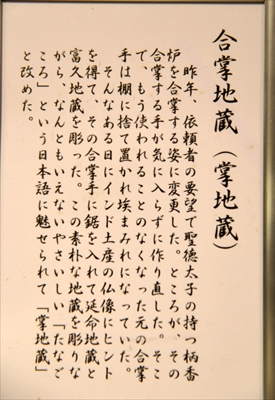 合掌地蔵(掌地蔵)
昨年、依頼者の要望で聖徳太子の持つ柄香
炉を合掌する姿に変更した。ところが、その
合掌する手が気に入らずに作り直した。そこ
で、もう使われることのなくなった元の合掌
手は棚に捨て置かれ埃まみれになっていた。
そんなある日にインド土産の仏像にヒント
を得て、その合掌手に鋸を入れて延命地蔵と
富久地蔵を彫った。この素朴な地蔵を彫りな
がら、なんともいえないやさしい「たなご
ころ」という日本語に魅せられて「掌地蔵」
と改めた。